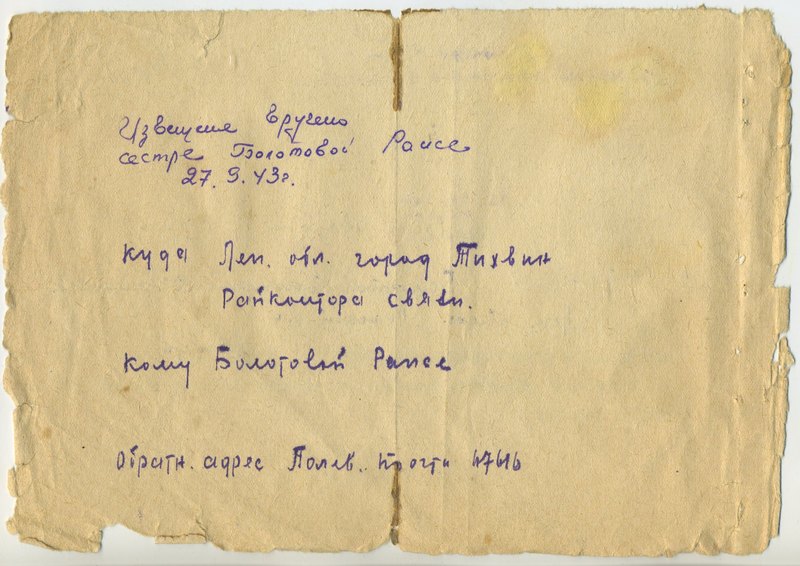 Извещение вручено
сестре Болотовой Раисе
27. 9. 43г.
куда Лен. обл. город Тихвин
Райконтора связи.
кому Болотовой Раисе
Обратн. адрес Полев. почта